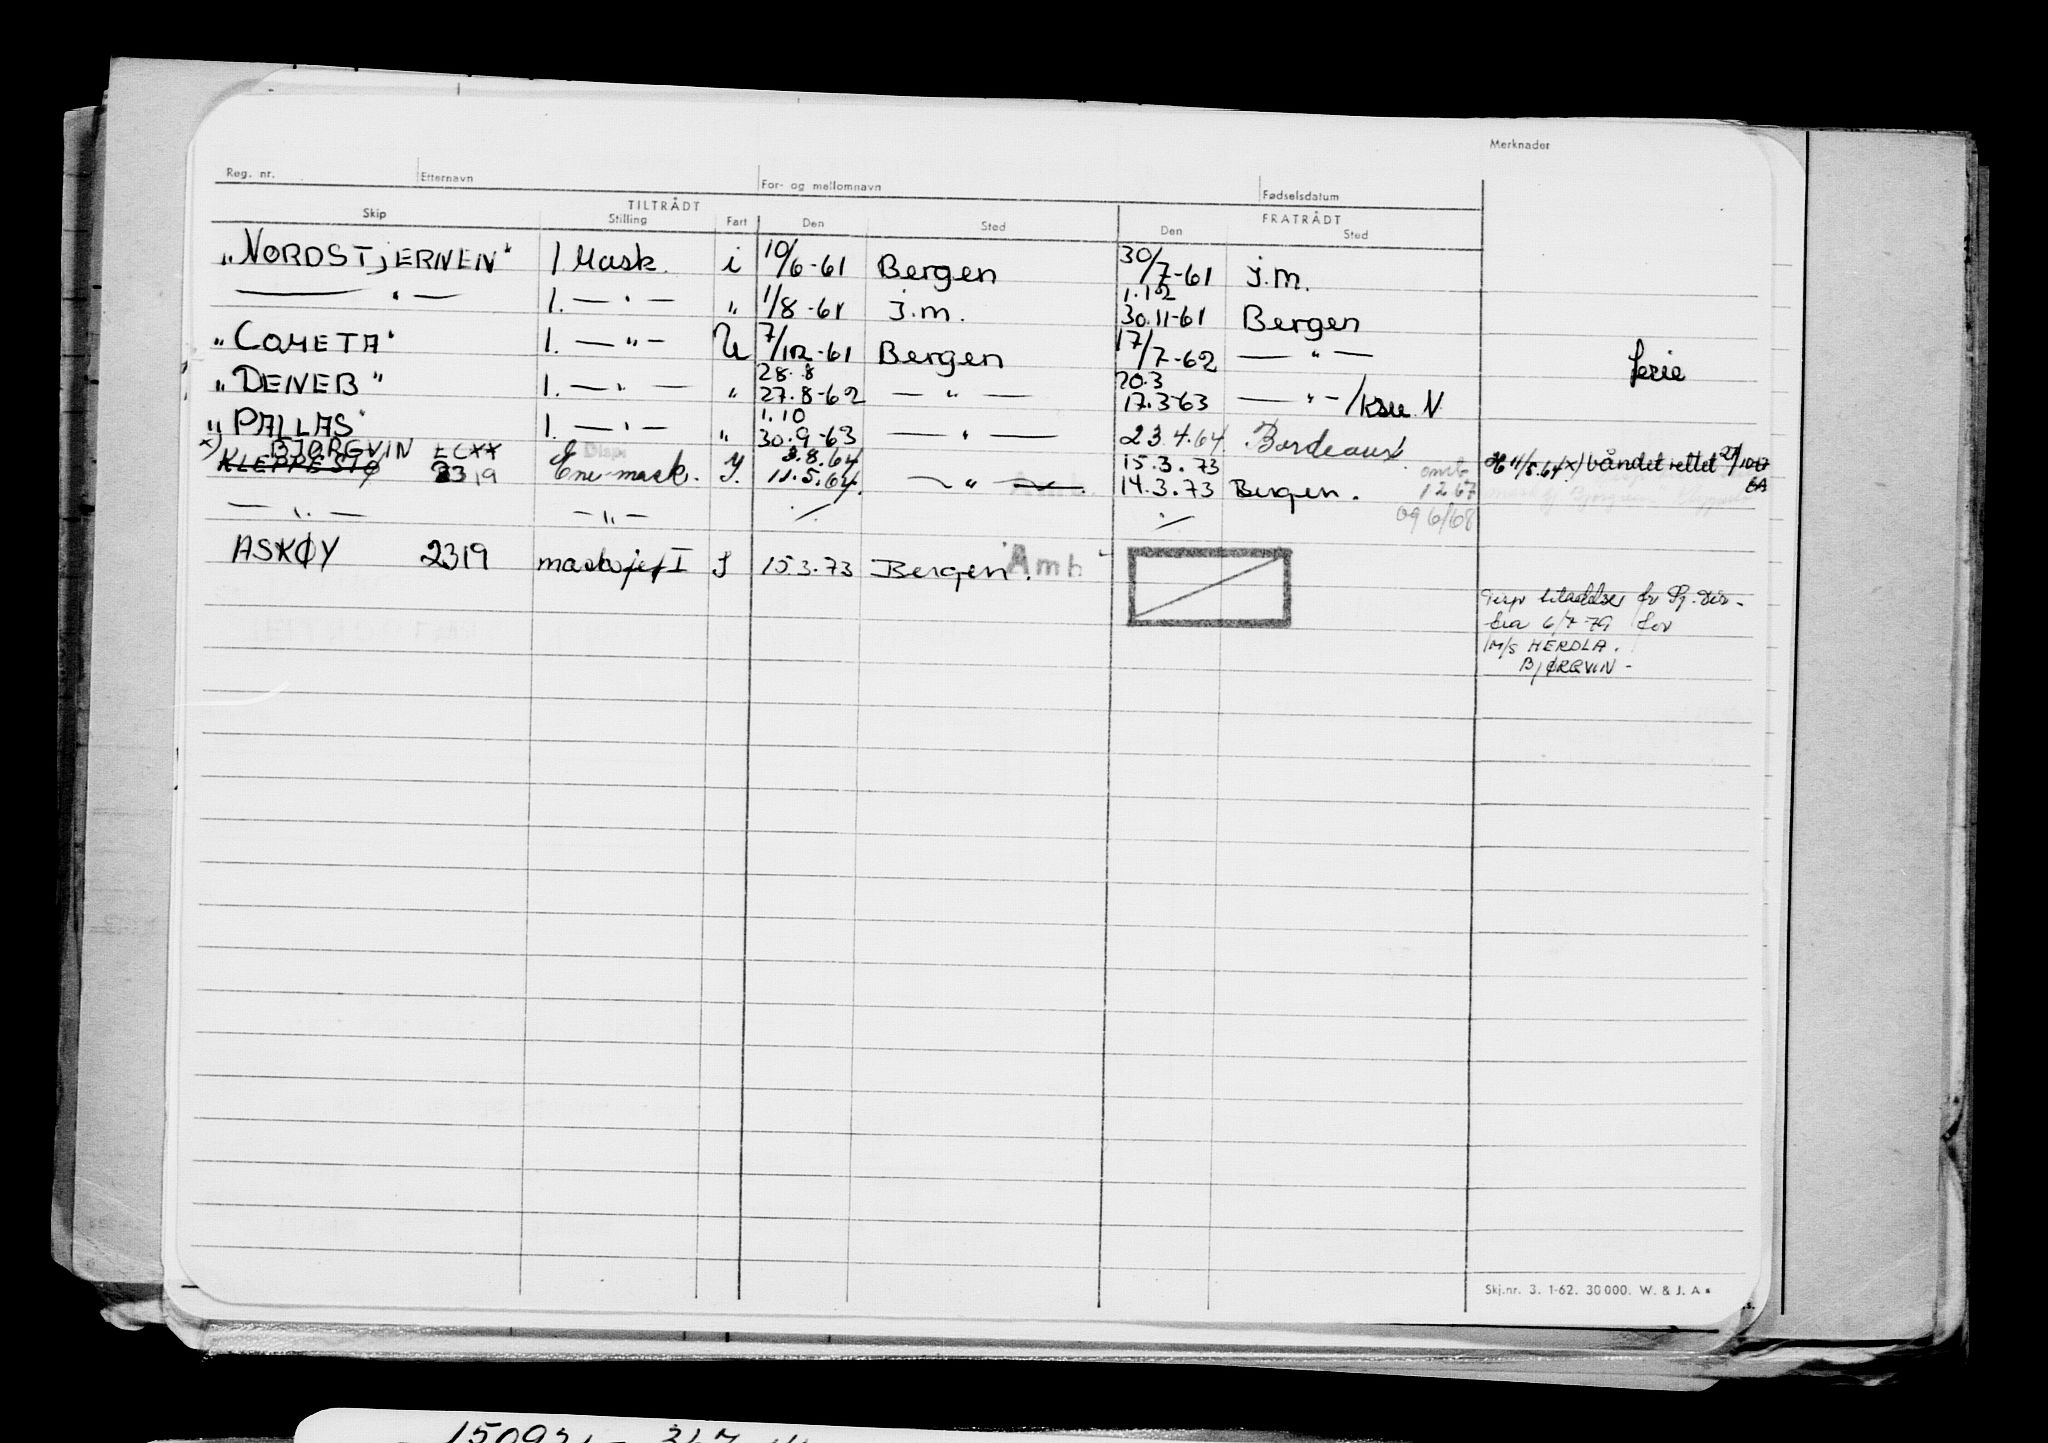 Merknader
Reg. nr. Etternavn For- og mellomnavn Fødselsdatum
TILTRÅDT FRATRÅDT
Skip Stilling Fart Den Sted Den Sted
"NORDSTjERNEN" 1 Mask. i 10/6-61 Bergen 30/7-61 J.M.
— " — 1. — " — " 1/8-61 J.m. 1.12 30.11-61 Bergen
"COMETA" 1. — " — U 7/12-61 Bergen 17/7-62 — " — ferie
"DENEB" 1. — " — " 28.8 27.8-62 — " — 20.3 17.3-63 — " —
"PALLAS" 1. — " — " 1.10 30.9-63 — " — 23.4.64 Bordeaux
x) BJØRGVIN LCXX Disp. 3.8.64 15.3.73
KLEPPESTØ 2319 Ene-mask. J. 11.5.64. — " — 14.3.73 Bergen. 1 2 67 x) båndet rettet
— " — — " — 09 6/68
ASKØY 2319 masksjef I J 15.3.73 Bergen. Amb
fra 6/7 79 for
M/S HERDLA.
BJØRGVIN -
Skj.nr. 3. 1-62. 30 000. W. & J. A